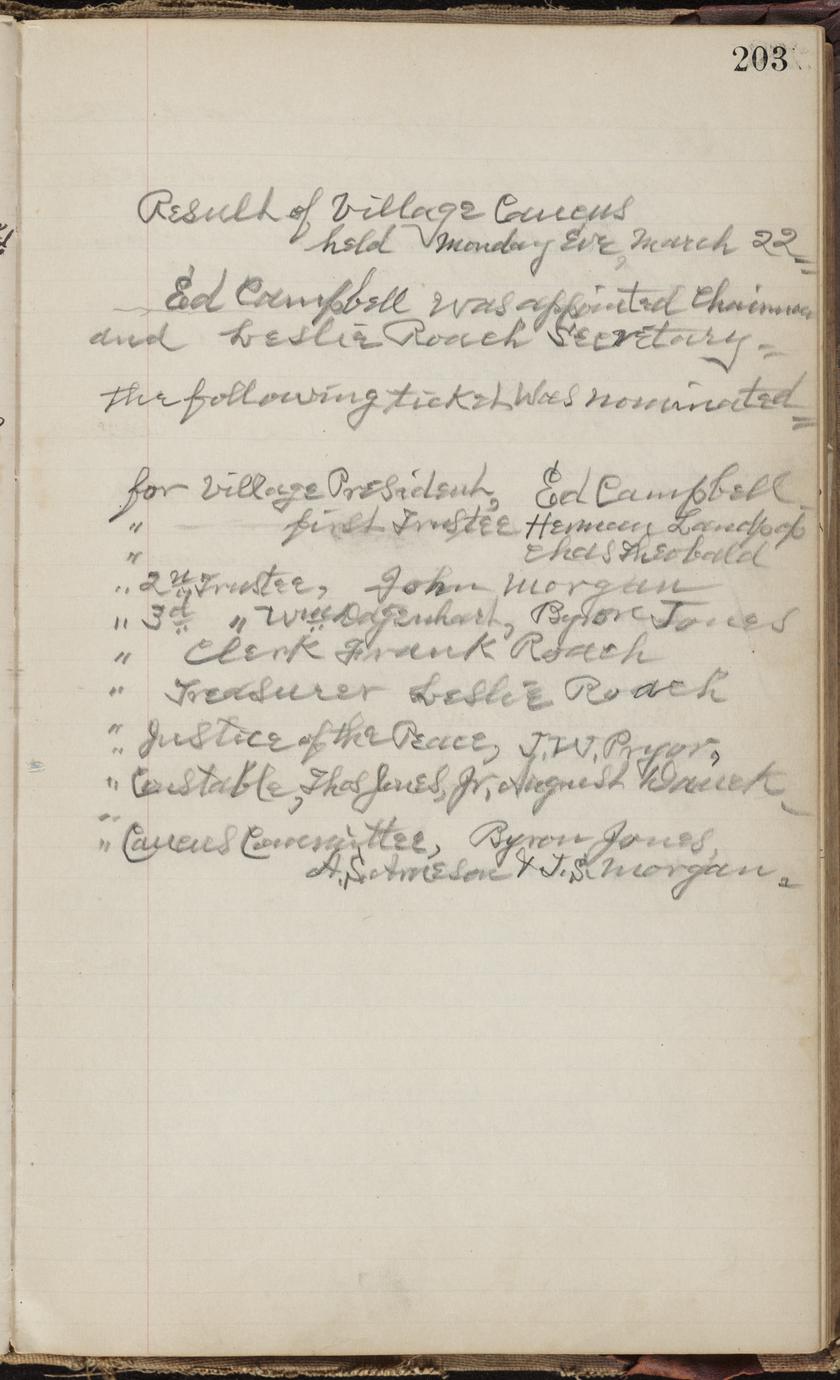 203
Result of Village Caucus
held Monday Eve, March 22
Ed Campbell was appointed Chairman
and Leslie Roach Secretary
the following ticket was nominated
for Village President, Ed Campbell
" first Trustee Herman
" Chas Theobald
" 2nd Trustee, John Morgan
" 3d " Wm Dagenhart, Byron Jones
" Clerk Frank Roach
" Treasurer Leslie Roach
" Justice of the Peace, J.W. Pryor,
" Constable, Thos Jones, Jr, August
" Caucus Committee, Byron Jones,
A.S. Arneson & J.S. Morgan